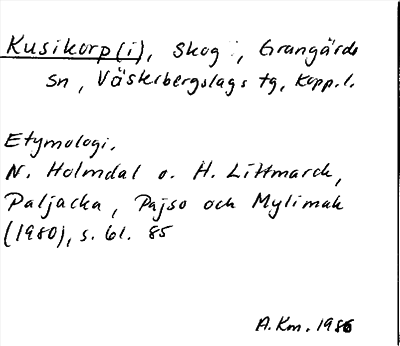 Kusikorp(i), Skog, Grangärde
sn, Västerbergslags tg, Kopp. l.
Etymologi.
N. Holmdal o. H. Littmarck,
Paljacka, Pajso och Mylimak
(1980), s. 61. 85
A.Km. 1986